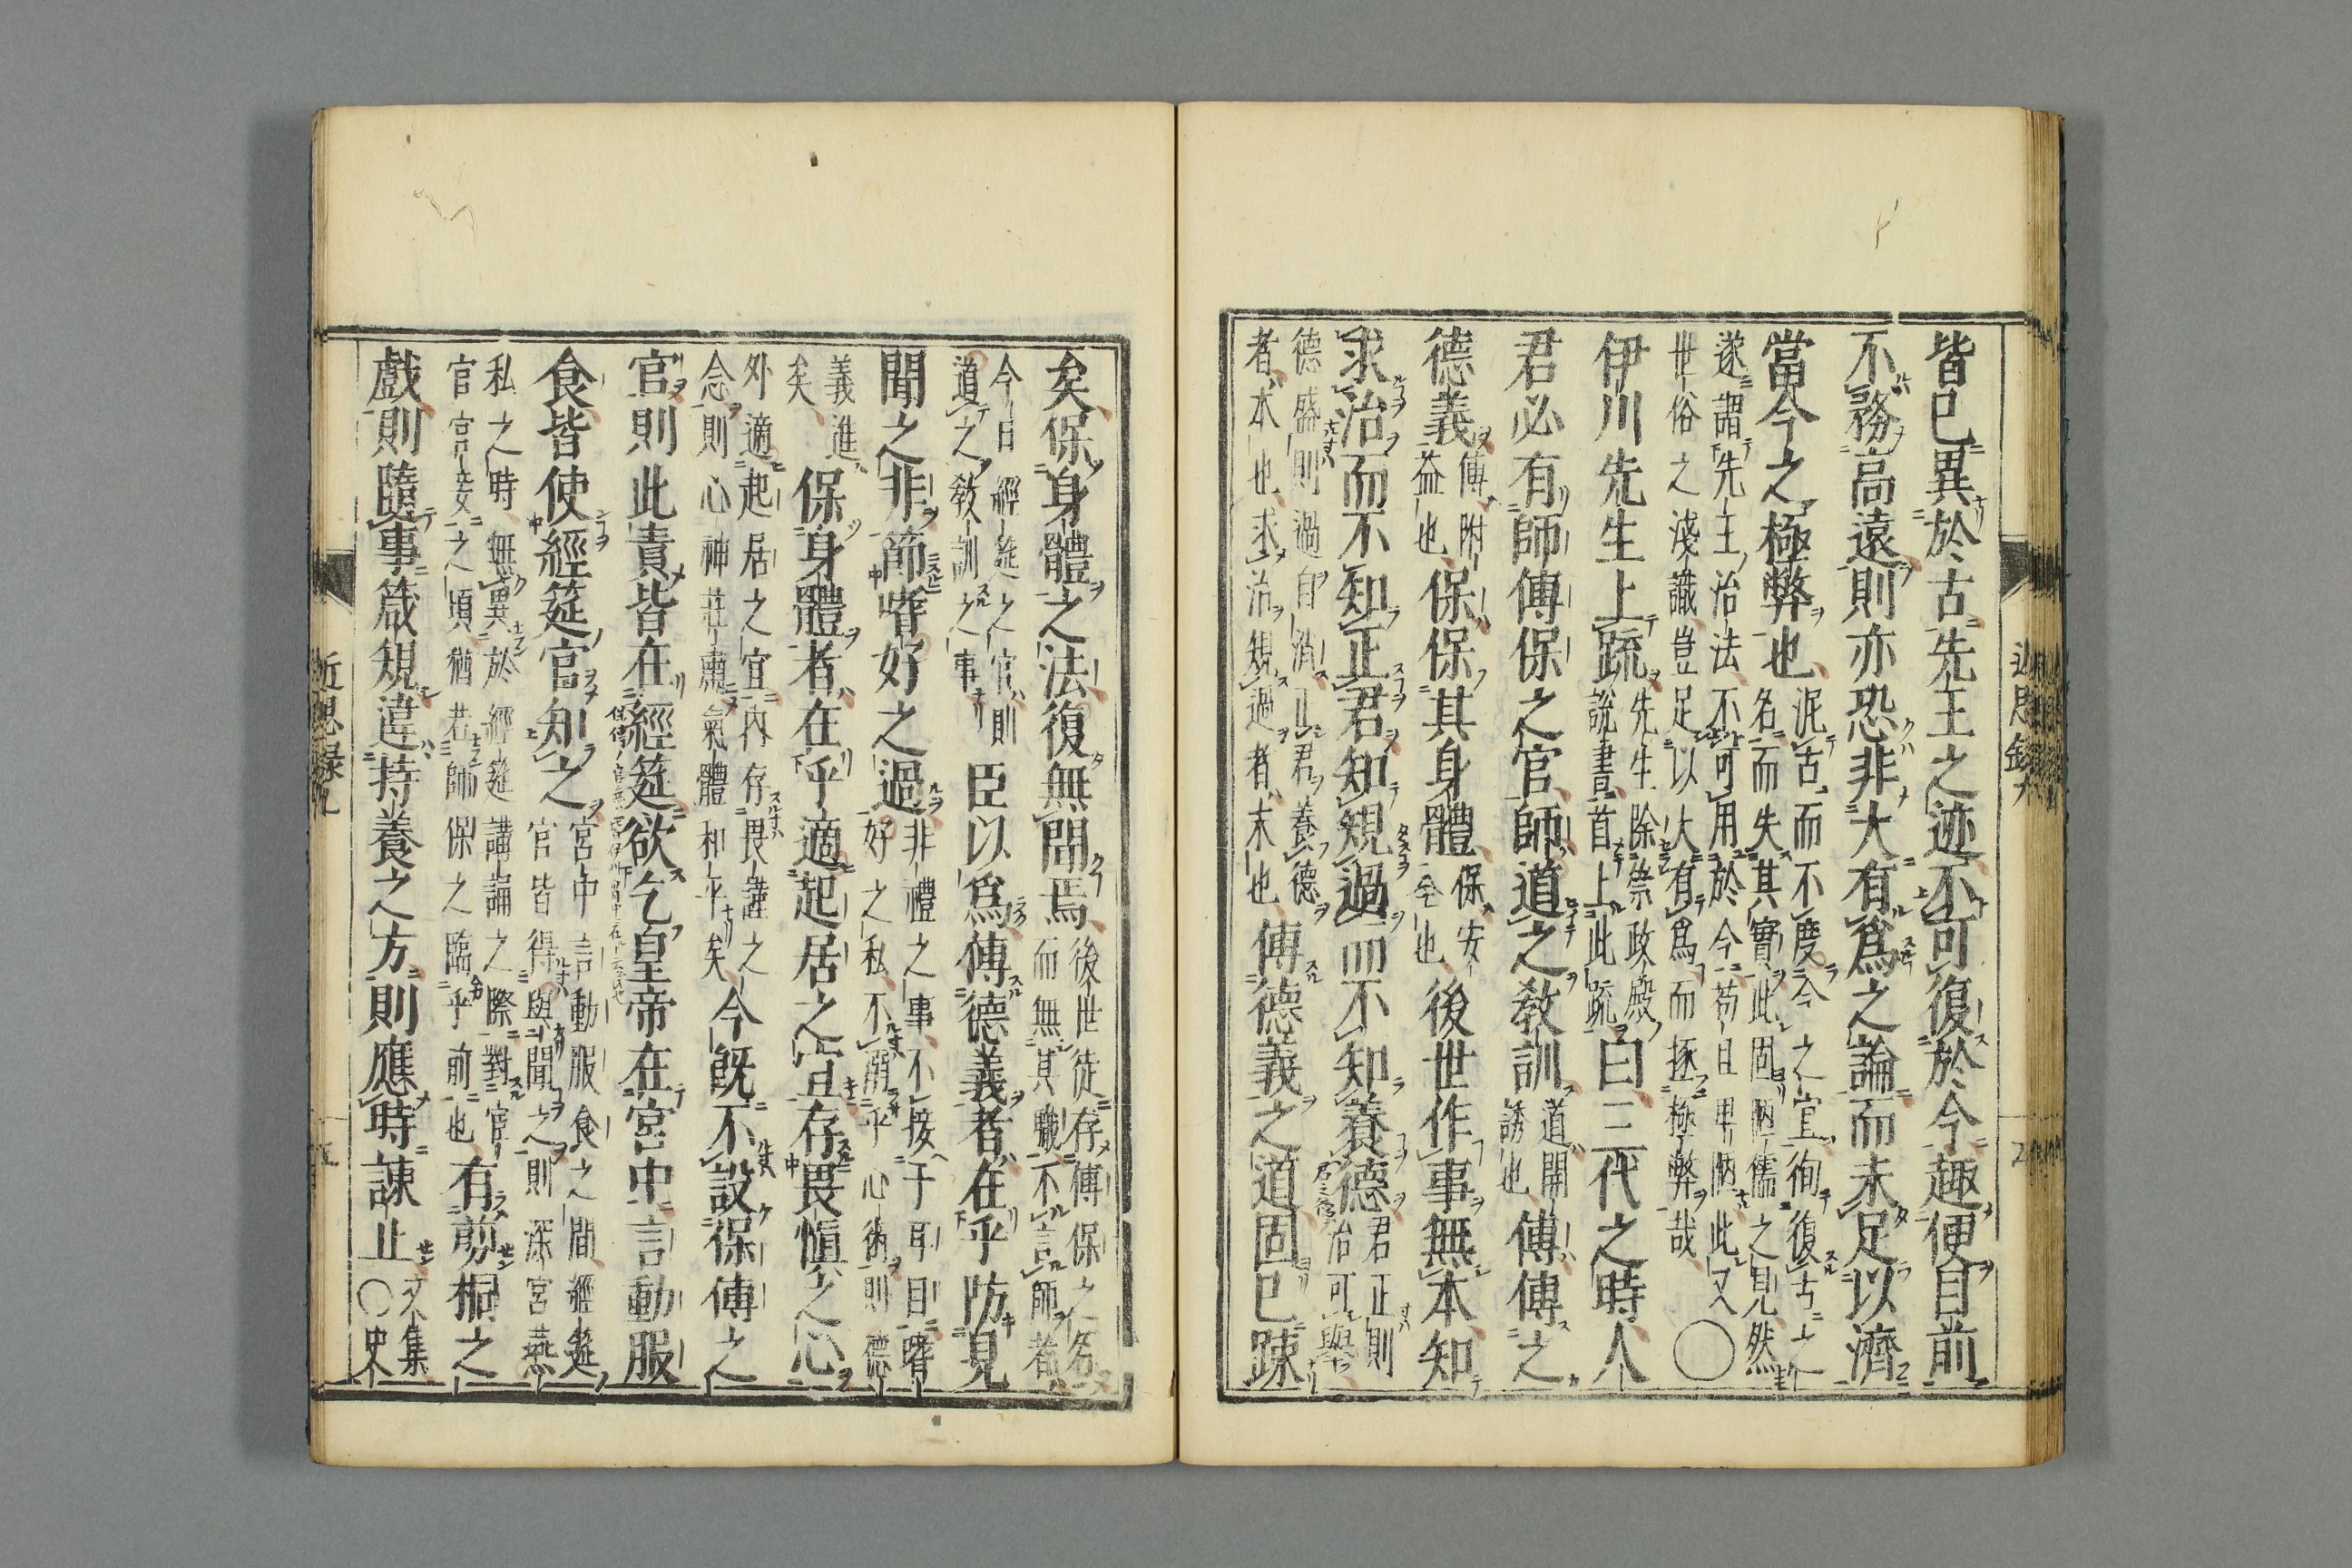 皆已異於古先王之迹不可復於今趣便目前
不務高遠則亦恐非大有爲之論而未足以濟
當今之極弊也
泥古而不度今之宜徇復古之
名而失其實此固陋儒之見然
遂謂先王治法不可用於今苟且卑陋此又
世俗之淺識豈足以大有爲而拯極弊哉
○
伊川先生上疏
先生除崇政殿
說書首上此疏
曰三代之時人
君必有師傅保之官師道之敎訓
道開
誘也
傅傅之
德義
傅附
益也
保保其身體
保安
全也
後世作事無本知
求治而不知正君知規過而不知養德
君正則
治可舉
德盛則過自消正君養德
者本也求治規過者末也
傅德義之道固已踈
矣保身體之法復無聞焉
後世徒存傅保之名
而無其職不言師者
今日經筵之官則
道之敎訓之事
臣以爲傅德義者在乎防見
聞之非節嗜好之過
非禮之事不接于耳目嗜
好之私不溺乎心術則德
義進
矣
保身體者在乎適起居之宜存畏愼之心
外適起居之宜内存畏謹之
念則心神莊肅氣體和平矣
今既不設保傅之
官則此責皆在經筵欲乞皇帝在宮中言動服
食皆使經筵官知之
宮中言動服食之間經筵
官皆得與聞之則深宮燕
私之時無異於經筵講論之際對
官宮妾之頃猶若師保之臨乎前也
有剪桐之
戲則隨事箴規違持養之方則應時諫止
文集
○史
近思録九